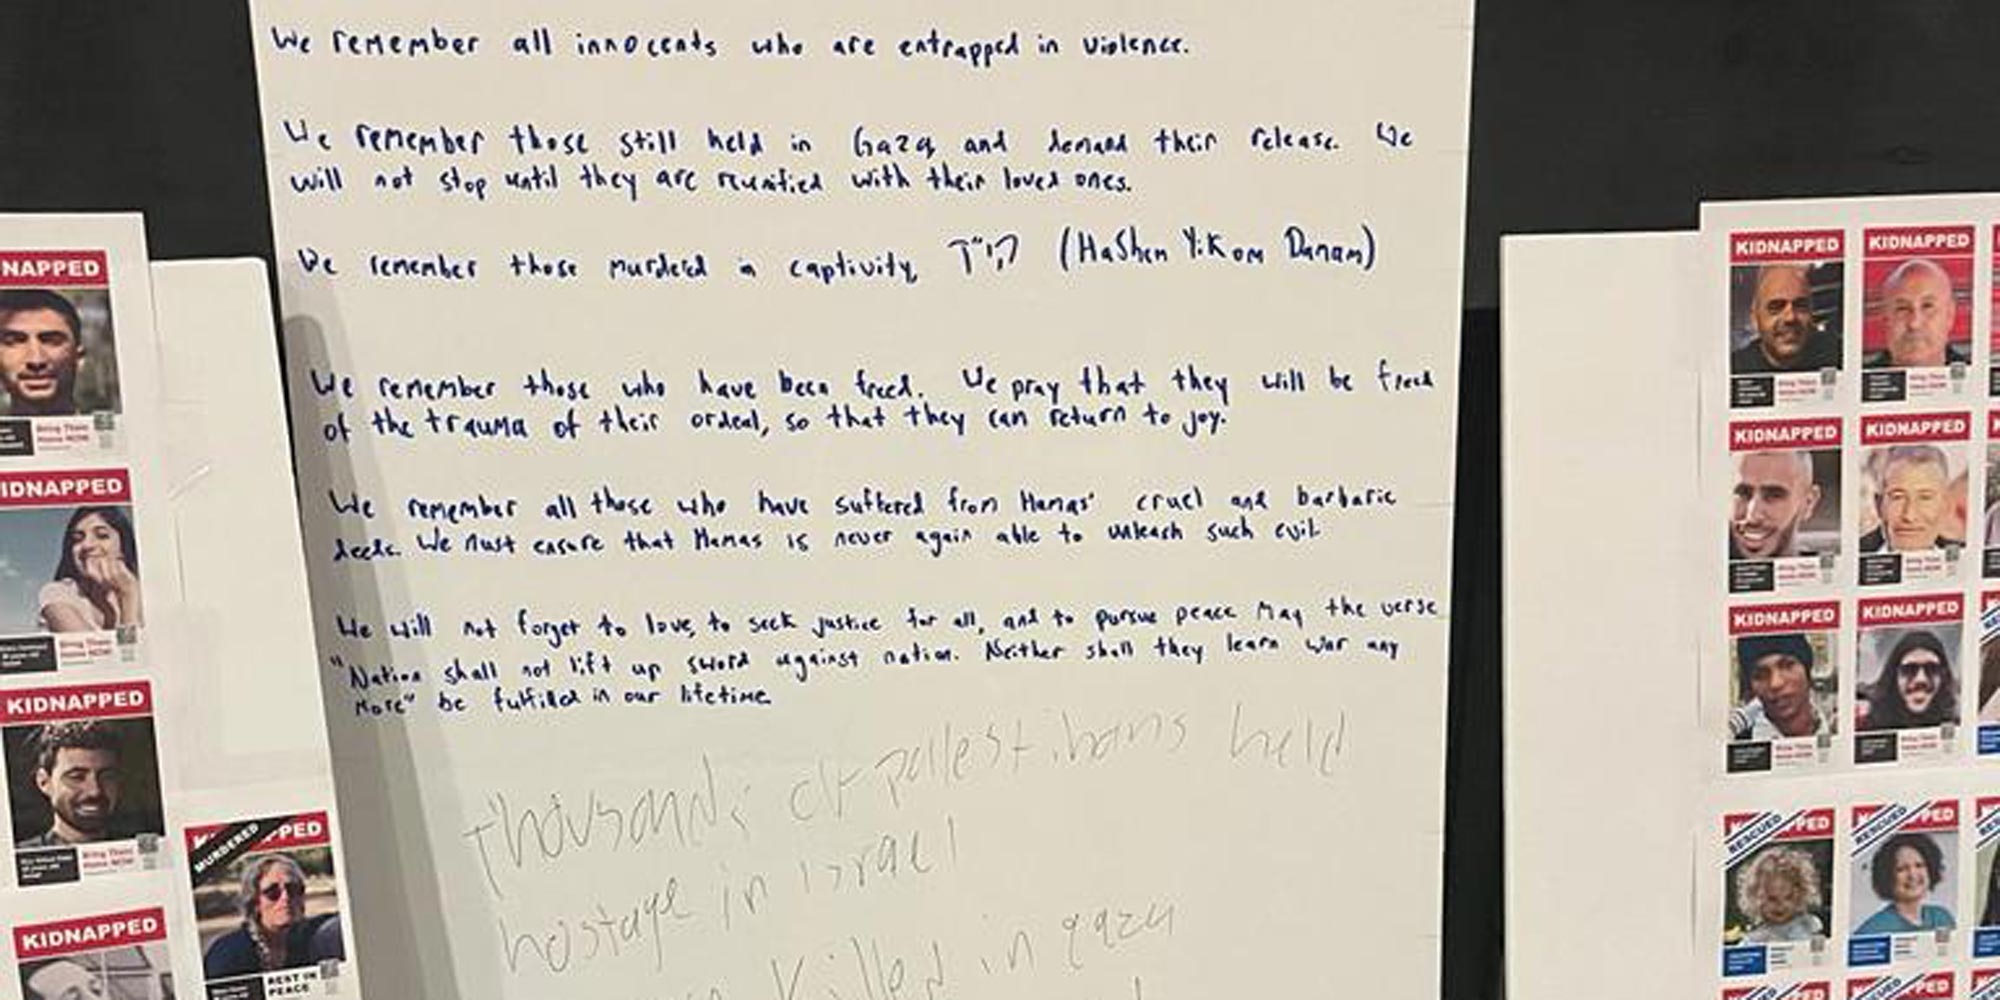 We remember all innocents who are entrapped in violence.
We remember those still held in Gaza and demand their release. We
will not stop until they are reunitied with their loved ones.
We remember those murdered in captivity, הי"ד (HaShem Yikom Danam)
We remember those who have been freed. We pray that they will be freed
of the trauma of their ordeal, so that they can return to joy.
We remember all those who have suffered from Hamas' cruel and barbaric
deeds. We must ensure that Hamas is never again able to unleash such evil.
We will not forget to love, to seek justice for all, and to pursue peace May the verse
"Nation shall not lift up sword against nation. Neither shall they learn war any
more" be fulfilled in our lifetime.
thousands of pallestinans held
hostage in israel
killed in gaza
NAPPED
Bring Them
Home NOW
IDNAPPED
KIDNAPPED
Bring Them
Home NOW
KIDNAPPED
MURDERED
PPED
REST IN
PEACE
KIDNAPPED
KIDNAPPED
KIDNAPPED
KIDNAPPED
KIDNAPPED
KIDNAPPED
RESCUED
PPED
RESCUED
PPED